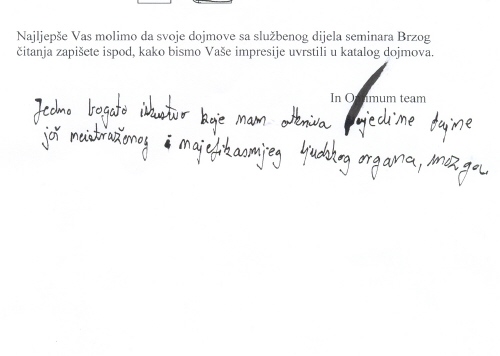 Najljepše Vas molimo da svoje dojmove sa službenog dijela seminara Brzog
čitanja zapišete ispod, kako bismo Vaše impresije uvrstili u katalog dojmova.
In Optimum team
Jedno bogato iskustvo koje nam otkriva pojedine tajne
još neistraženog i najefikasnijeg ljudskog organa, mozga.